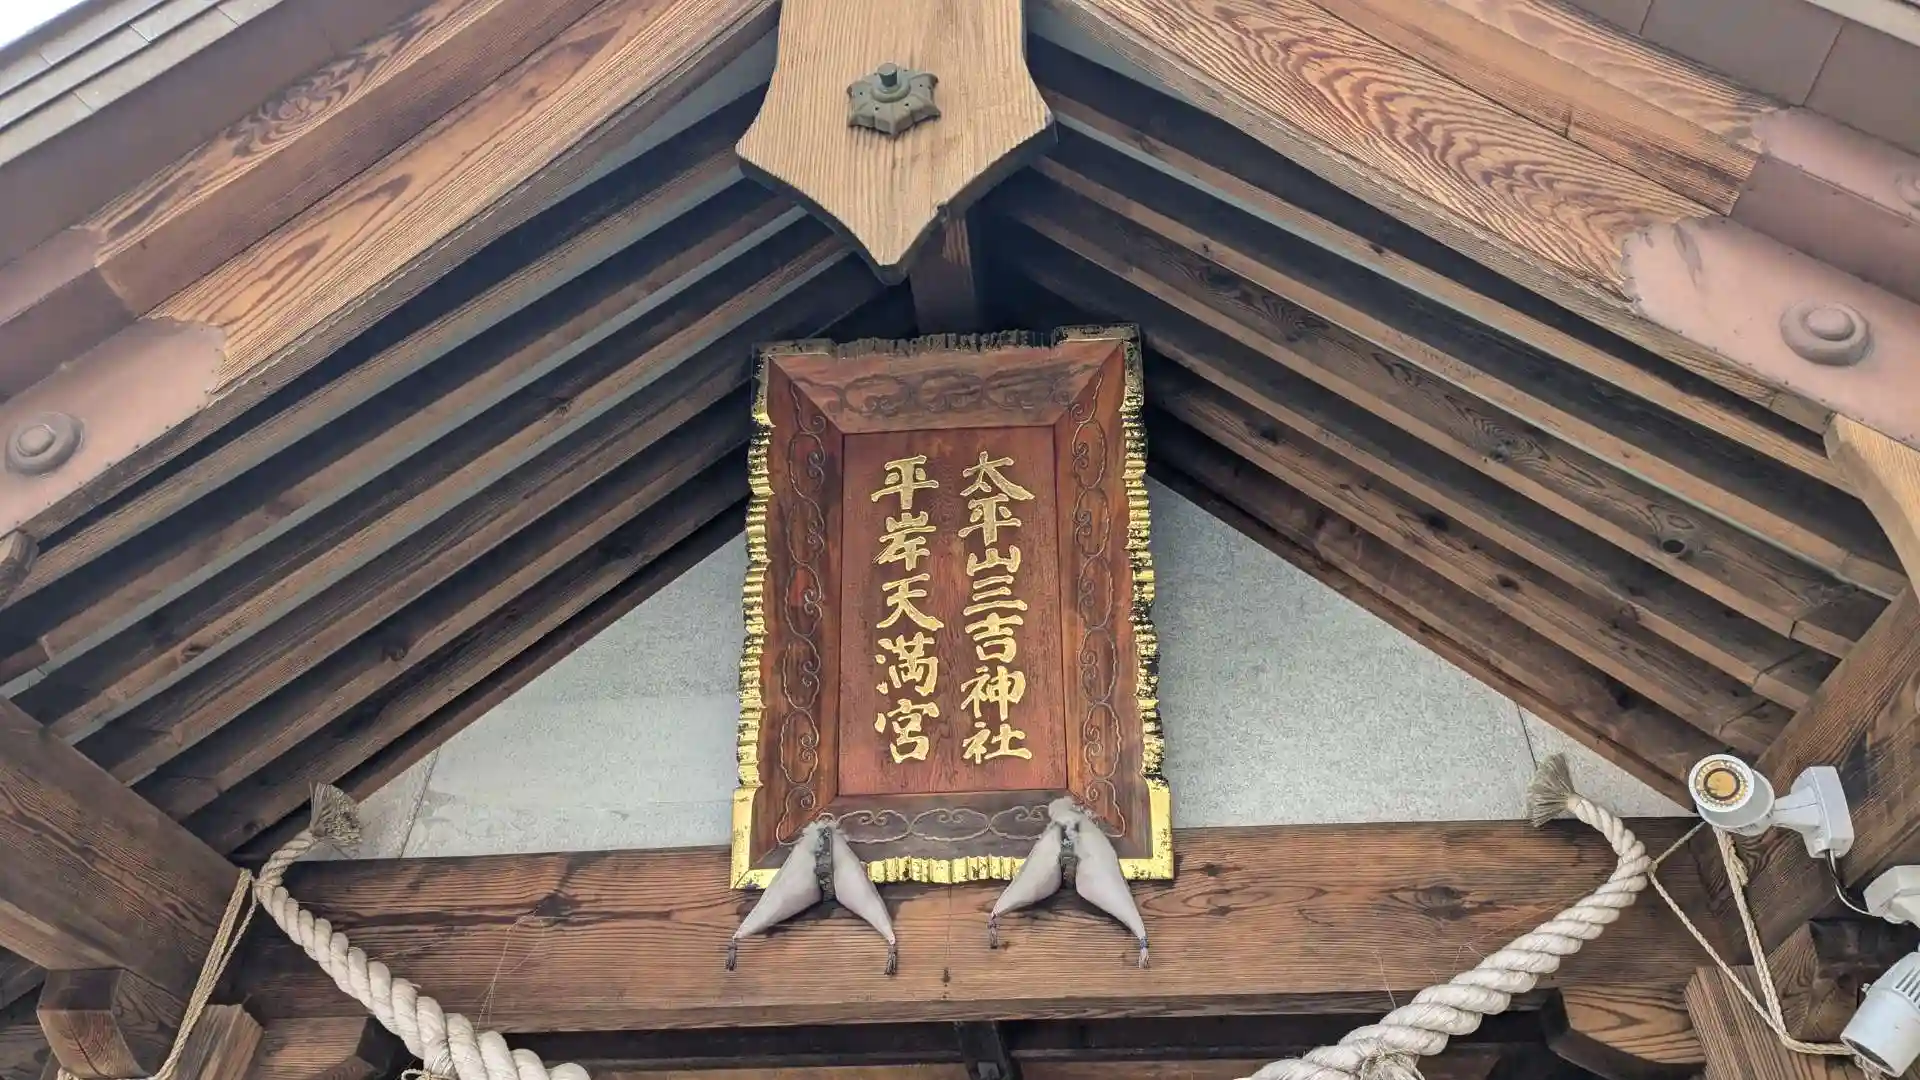 太平山三吉神社
平岸天満宮